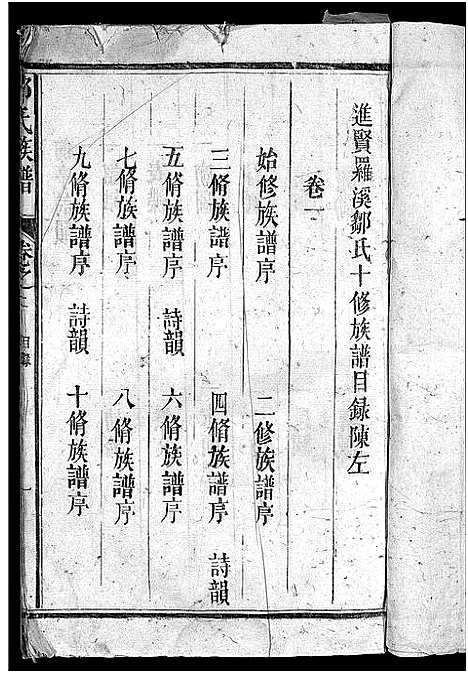 進賢羅溪鄒氏十修族譜目録陳左
卷一
始修族譜序 二修族譜序
三脩族譜序 四脩族譜序 詩韻
五脩族譜序 詩韻 六脩族譜序
七脩族譜序 八脩族譜序
九脩族譜序 詩韻 十脩族譜序
氏族譜